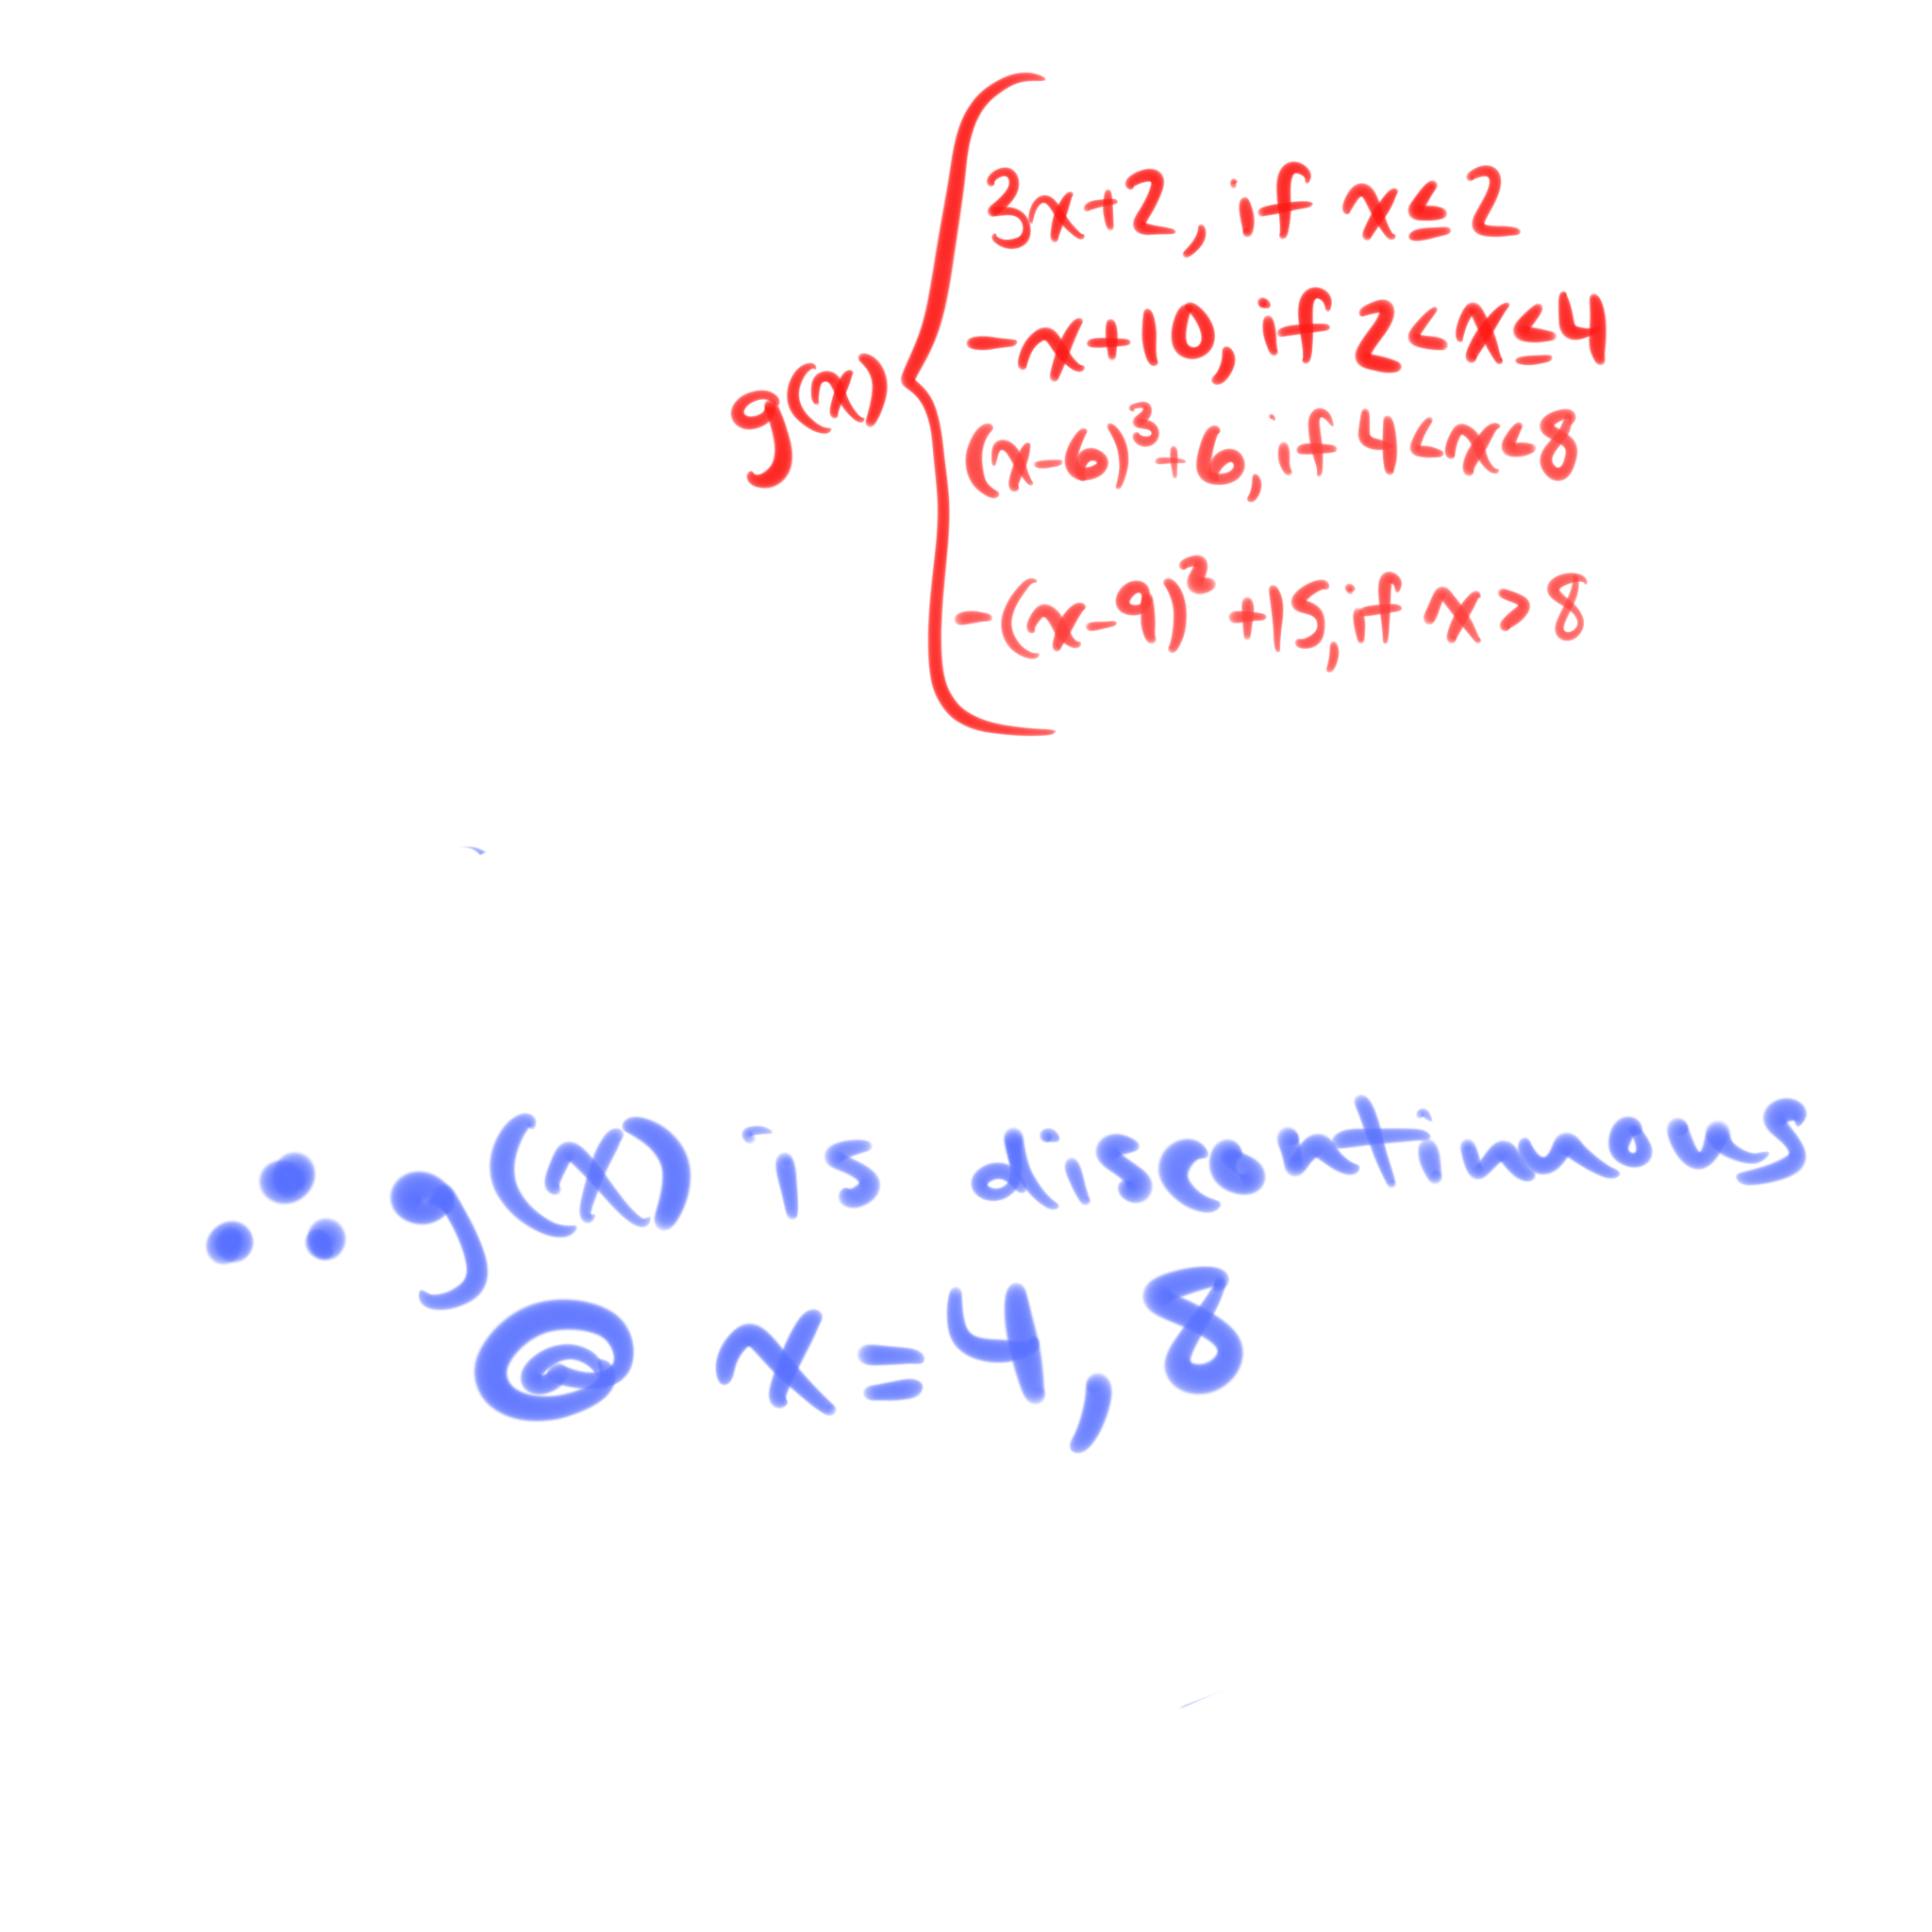 g(x) {
3x+2, if x≤2
-x+10, if 2<x≤4
(x-6)³+6, if 4<x<8
-(x-9)²+15, if x>8
∴ g(x) is discontinuous
@ x=4, 8